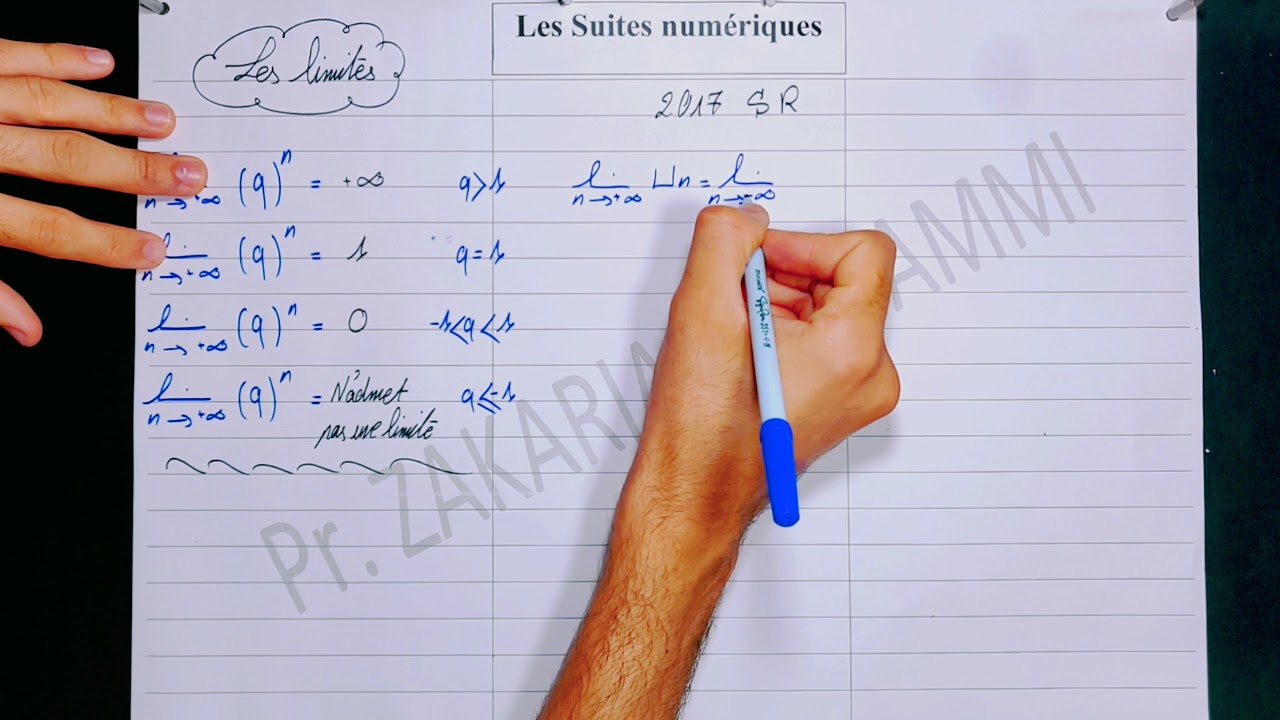 Les Suites numériques
Les limites
2017 SR
(q)ⁿ = +∞ q>1
n→+∞
lim (q)ⁿ = 1 q=1
n→+∞
lim (q)ⁿ = 0 -1<q<1
n→+∞
lim (q)ⁿ = N'admet pas une limite q≤-1
n→+∞
lim Un = lim
n→+∞ n→+∞
Pr. ZAKARIA